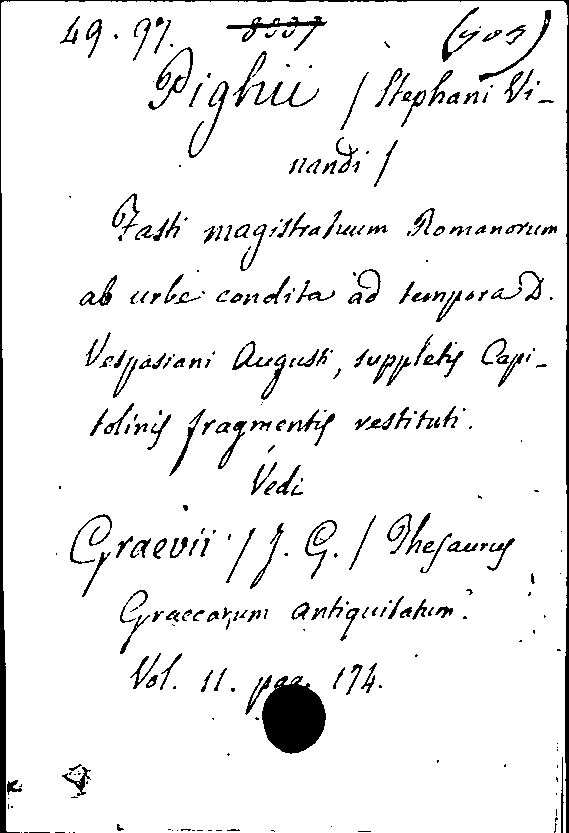 49. 97. 8537 (903)
Pighii / Stephani Vi-
nandi /
Fasti magistratuum Romanorum
ab urbe condita ad tempora D.
Vespasiani Augusti, suppletis Capi-
tolinis fragmentis restituti.
Vedi
Graevii / J. G. / Thesaurus
Graecorum antiquitatum.
Vol. 11. pag. 174.